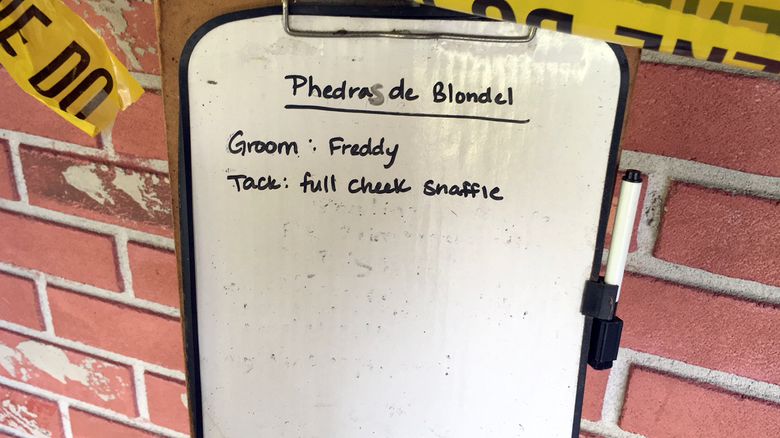 NE DO
DO
ENE
Phedras de Blondel
Groom: Freddy
Tack: full cheek snaffle